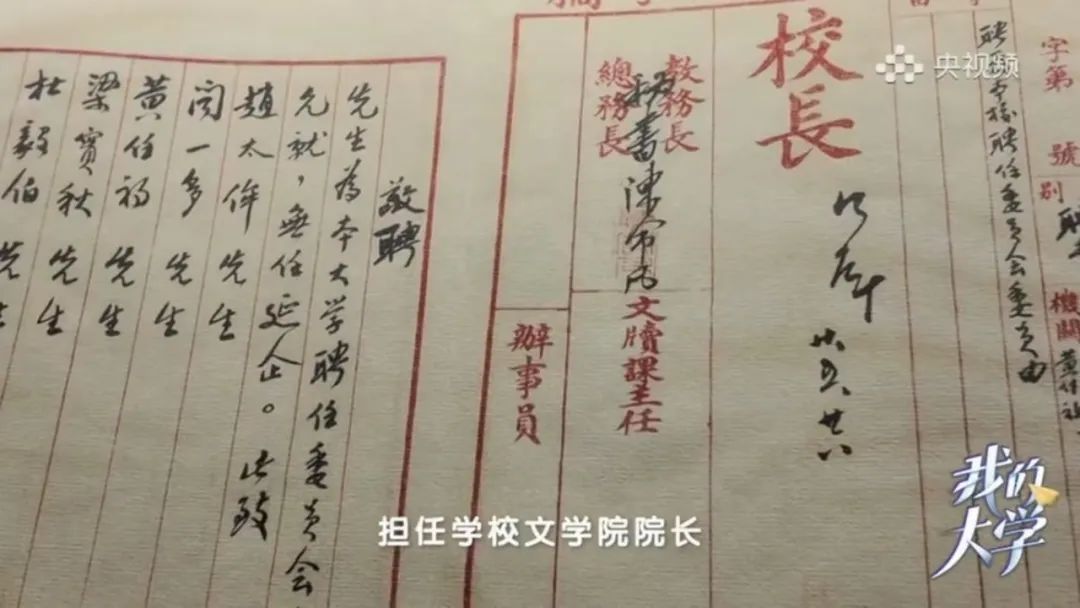 央视频
字第 號
别
機關
本校聘任委員会委員由
校長
教務長
總務長
秘書陳命凡
文牘課主任
辦事員
敬聘
先生為本大学聘任委員会
允就，無任延企。此致
趙太侔 先生
闻一多 先生
黄任初 先生
梁實秋 先生
杜毅伯 先生
担任学校文学院院长
我的
大学